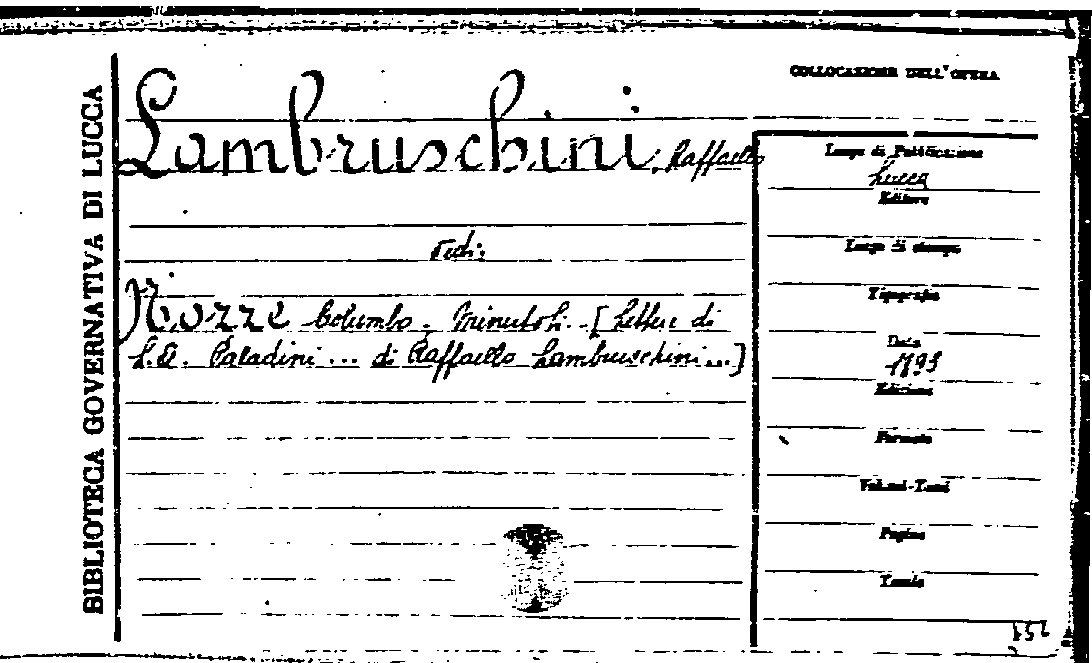 BIBLIOTECA GOVERNATIVA DI LUCCA
COLLOCAZIONE DELL'OPERA
Lambruschini, Raffaello
Vedi:
Nozze Columbo - Minutoli. [Lettere di
L.A. Paladini ... di Raffaello Lambruschini ...]
Luogo di Pubblicazione
Lucca
Editore
Luogo di stampa
Tipografia
Data
1893
Edizione
Formato
Volumi-Tomi
Pagine
Tavole